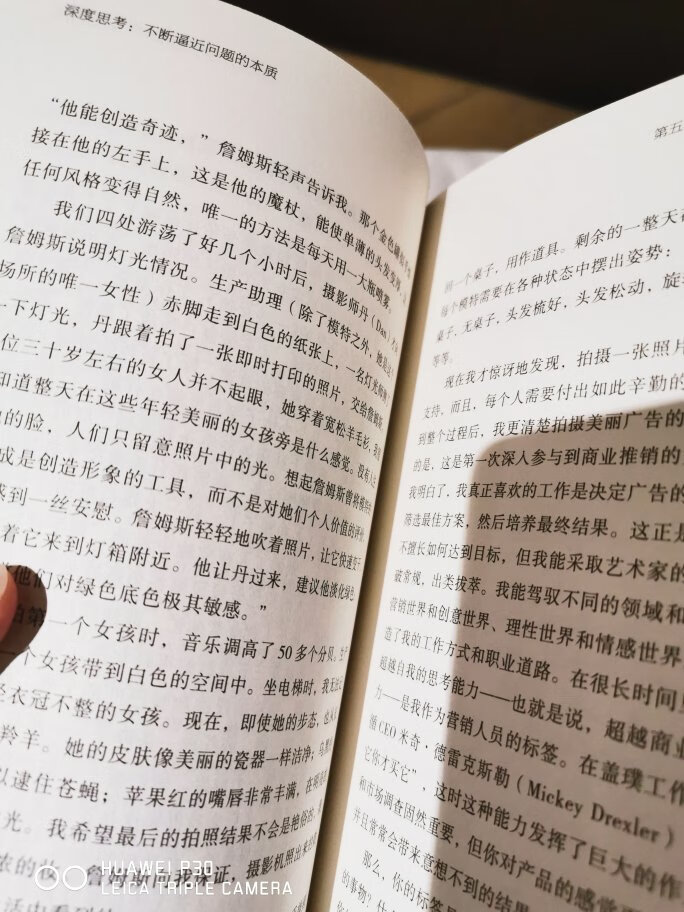 深度思考：不断逼近问题的本质
“他能创造奇迹，”詹姆斯轻声告诉我。那个金色
接在他的左手上，这是他的魔杖，能使单薄的头发
任何风格变得自然，唯一的方法是每天用一大瓶喷雾
我们四处游荡了好几个小时后，摄影师丹（Dan）
詹姆斯说明灯光情况。生产助理（除了模特之外，她是
场所的唯一女性）赤脚走到白色的纸张上，一名灯光
一下灯光，丹跟着拍了一张即时打印的照片，交给詹姆斯
位三十岁左右的女人并不起眼，她穿着宽松羊毛衫，
知道整天在这些年轻美丽的女孩旁是什么感觉。没有人
的脸，人们只留意照片中的光。想起詹姆斯
成是创造形象的工具，而不是对她们个人价值的评价
感到一丝安慰。詹姆斯轻轻地吹着照片，让它快速
着它来到灯箱附近。他让丹过来，建议他淡化绿色
他们对绿色底色极其敏感。”
第一个女孩时，音乐调高了50多个分贝，生产
一个女孩带到白色的空间中。坐电梯时，我无法
衣冠不整的女孩。现在，即使她的步态，也
羚羊。她的皮肤像美丽的瓷器一样洁净；乌黑
以逮住苍蝇；苹果红的嘴唇非常丰满，在
光。我希望最后的拍照结果不会是艳俗的，
詹姆斯向我保证，摄影机照出来
第五
一个桌子，用作道具。剩余的一整天
每个模特需要在各种状态中摆出姿势：
桌子，无桌子，头发梳好，头发松动，旋
等等。
现在我才惊讶地发现，拍摄一张照片
支持，而且，每个人需要付出如此辛勤的
到整个过程后，我更清楚拍摄美丽广告的
的是，这是第一次深入参与到商业推销的
我明白了，我真正喜欢的工作是决定广告的
筛选最佳方案，然后培养最终结果。这正是
不擅长如何达到目标，但我能采取艺术家的
破常规，出类拔萃。我能驾驭不同的领域和
营销世界和创意世界、理性世界和情感世界
造了我的工作方式和职业道路。在很长时间
超越自我的思考能力——也就是说，超越商业
力——是我作为营销人员的标签。在盖璞工作
循CEO米奇·德雷克斯勒（Mickey Drexler）
它你才买它”，这时这种能力发挥了巨大的作
和市场调查固然重要，但你对产品的感觉
并且常常会带来意想不到的结果。
那么，你的标签
的事物？什
HUAWEI P30
LEICA TRIPLE CAMERA